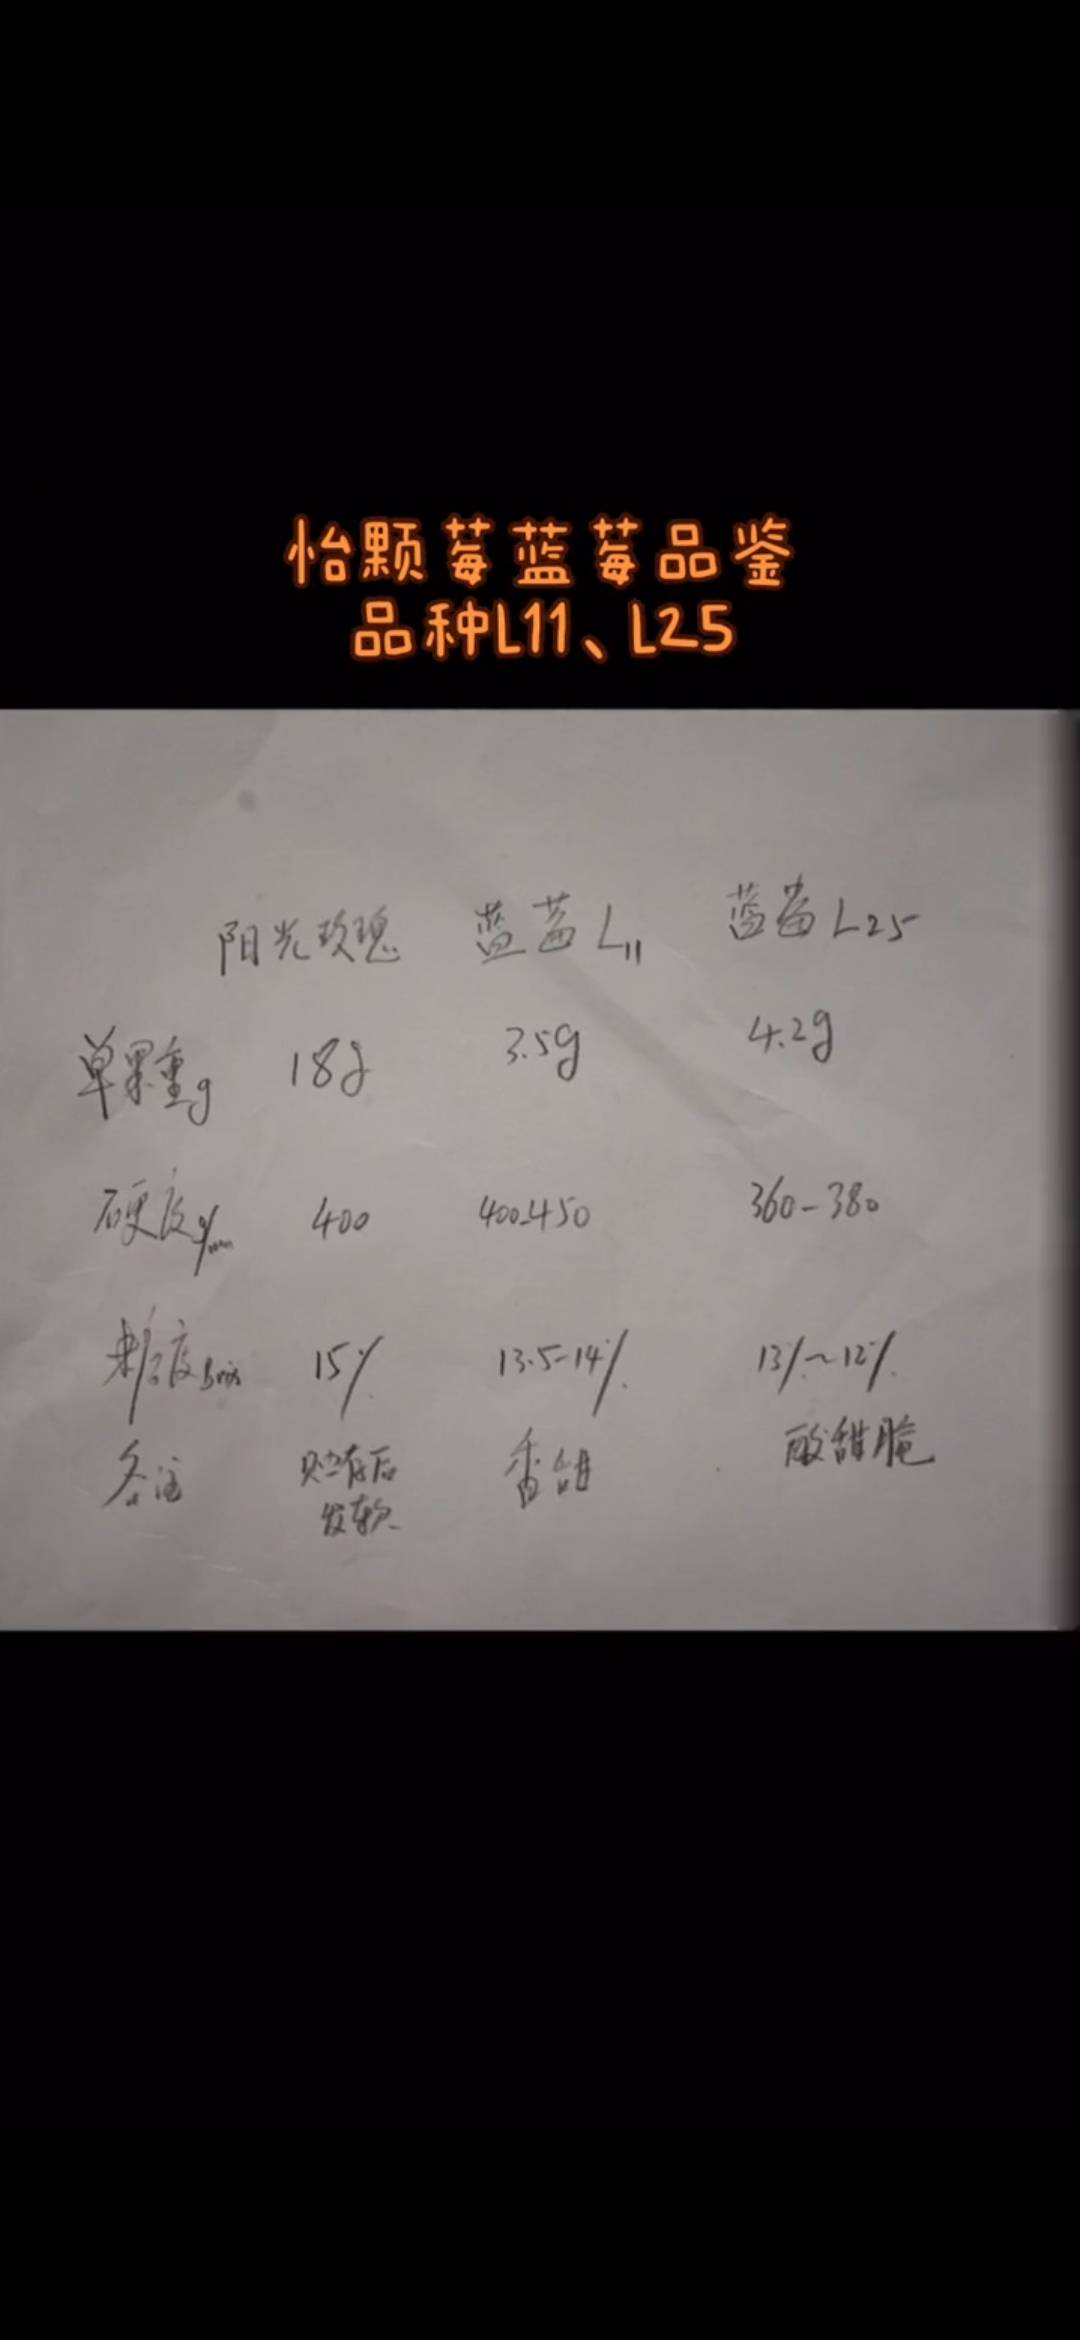 怡颗莓蓝莓品鉴
品种L11、L25
阳光玫瑰 蓝莓L11 蓝莓L25
单果重g 18g 3.5g 4.2g
硬度g/mm 400 400-450 360-380
糖度Brix 15% 13.5-14% 13%~12%
备注 贮存后 香甜 酸甜脆
发软